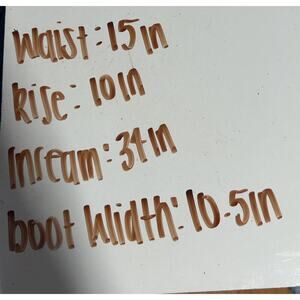 waist: 15in
Rise: 10in
Inseam: 34in
boot width: 10.5in